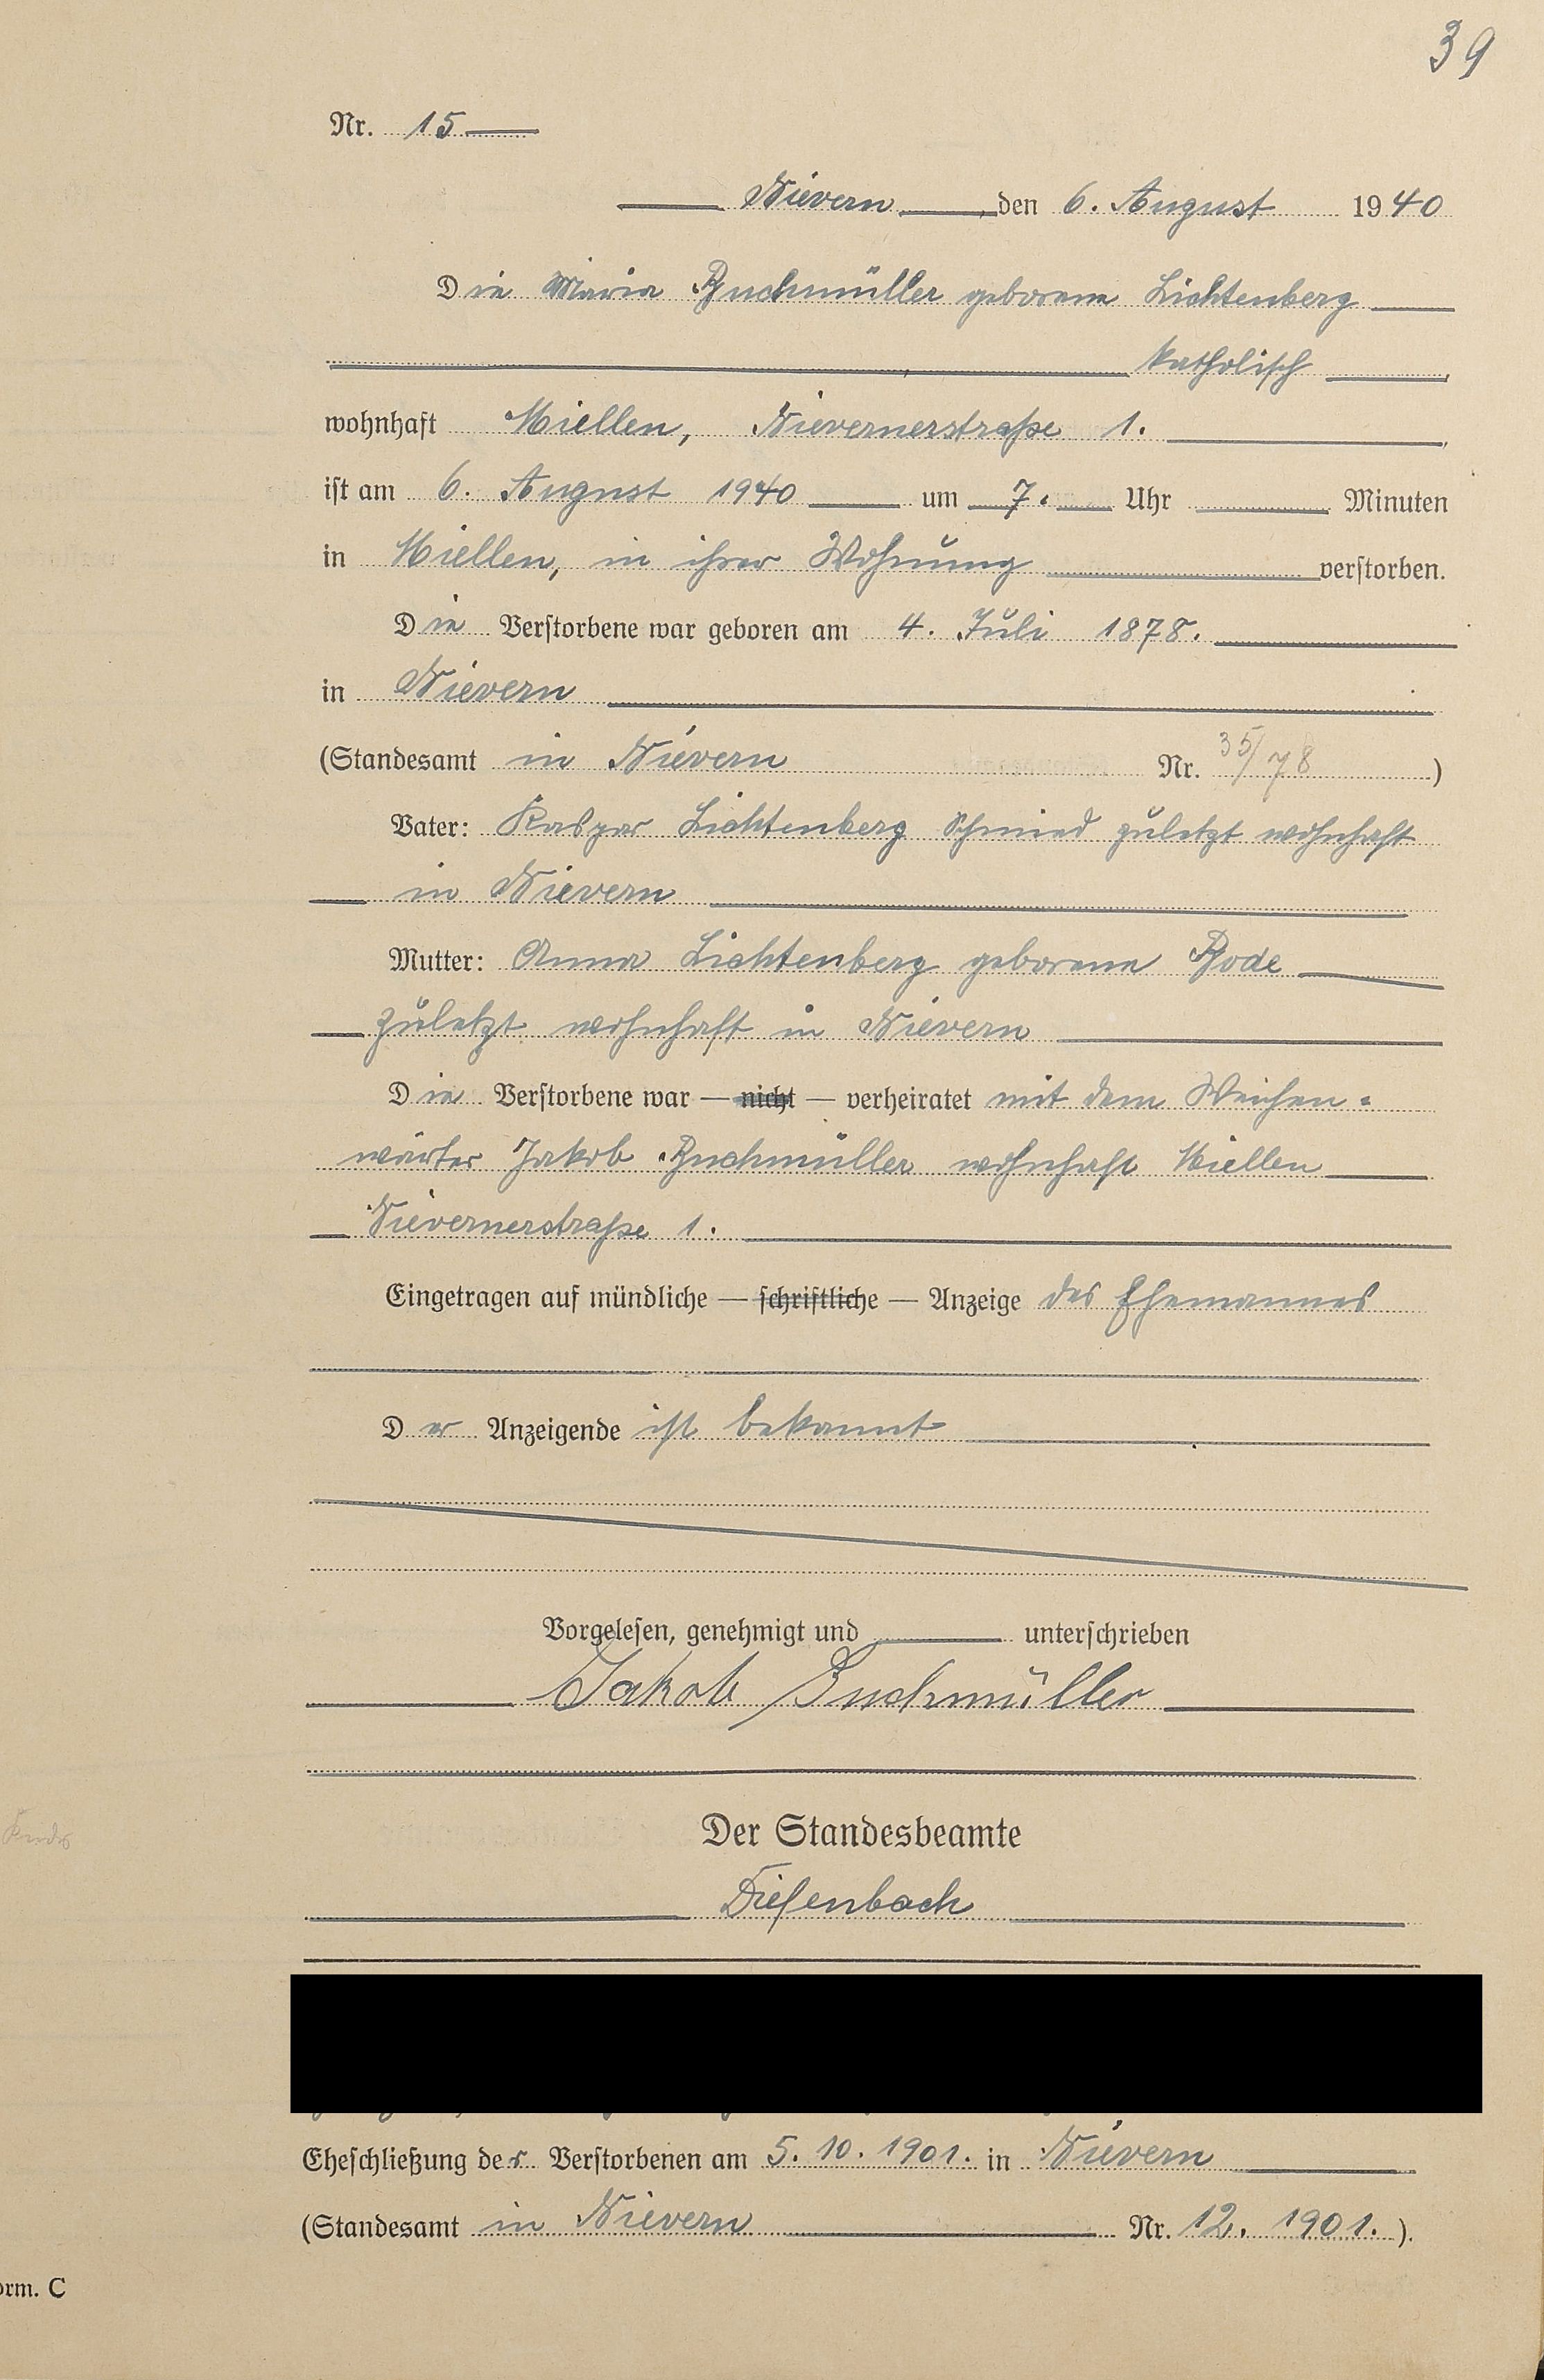 39
Nr. 15
Nievern, den 6. August 1940
Die Maria Buchmüller geborene Lichtenberg
katholisch
wohnhaft Miellen, Nievernerstraße 1.
ist am 6. August 1940 um 7. Uhr Minuten
in Miellen, in ihrer Wohnung verstorben.
Die Verstorbene war geboren am 4. Juli 1878.
in Nievern
(Standesamt in Nievern Nr. 35/78)
Vater: Kaspar Lichtenberg Schmied zuletzt wohnhaft
in Nievern
Mutter: Anna Lichtenberg geborene Bode
zuletzt wohnhaft in Nievern
Die Verstorbene war — nicht — verheiratet mit dem Weichen-
wärter Jakob Buchmüller wohnhaft Miellen
Nievernerstraße 1.
Eingetragen auf mündliche — schriftliche — Anzeige des Ehemannes
Der Anzeigende ist bekannt
Vorgelesen, genehmigt und unterschrieben
Jakob Buchmüller
Der Standesbeamte
Diefenbach
Eheschließung der Verstorbenen am 5. 10. 1901. in Nievern
(Standesamt in Nievern Nr. 12. 1901.).
orm. C